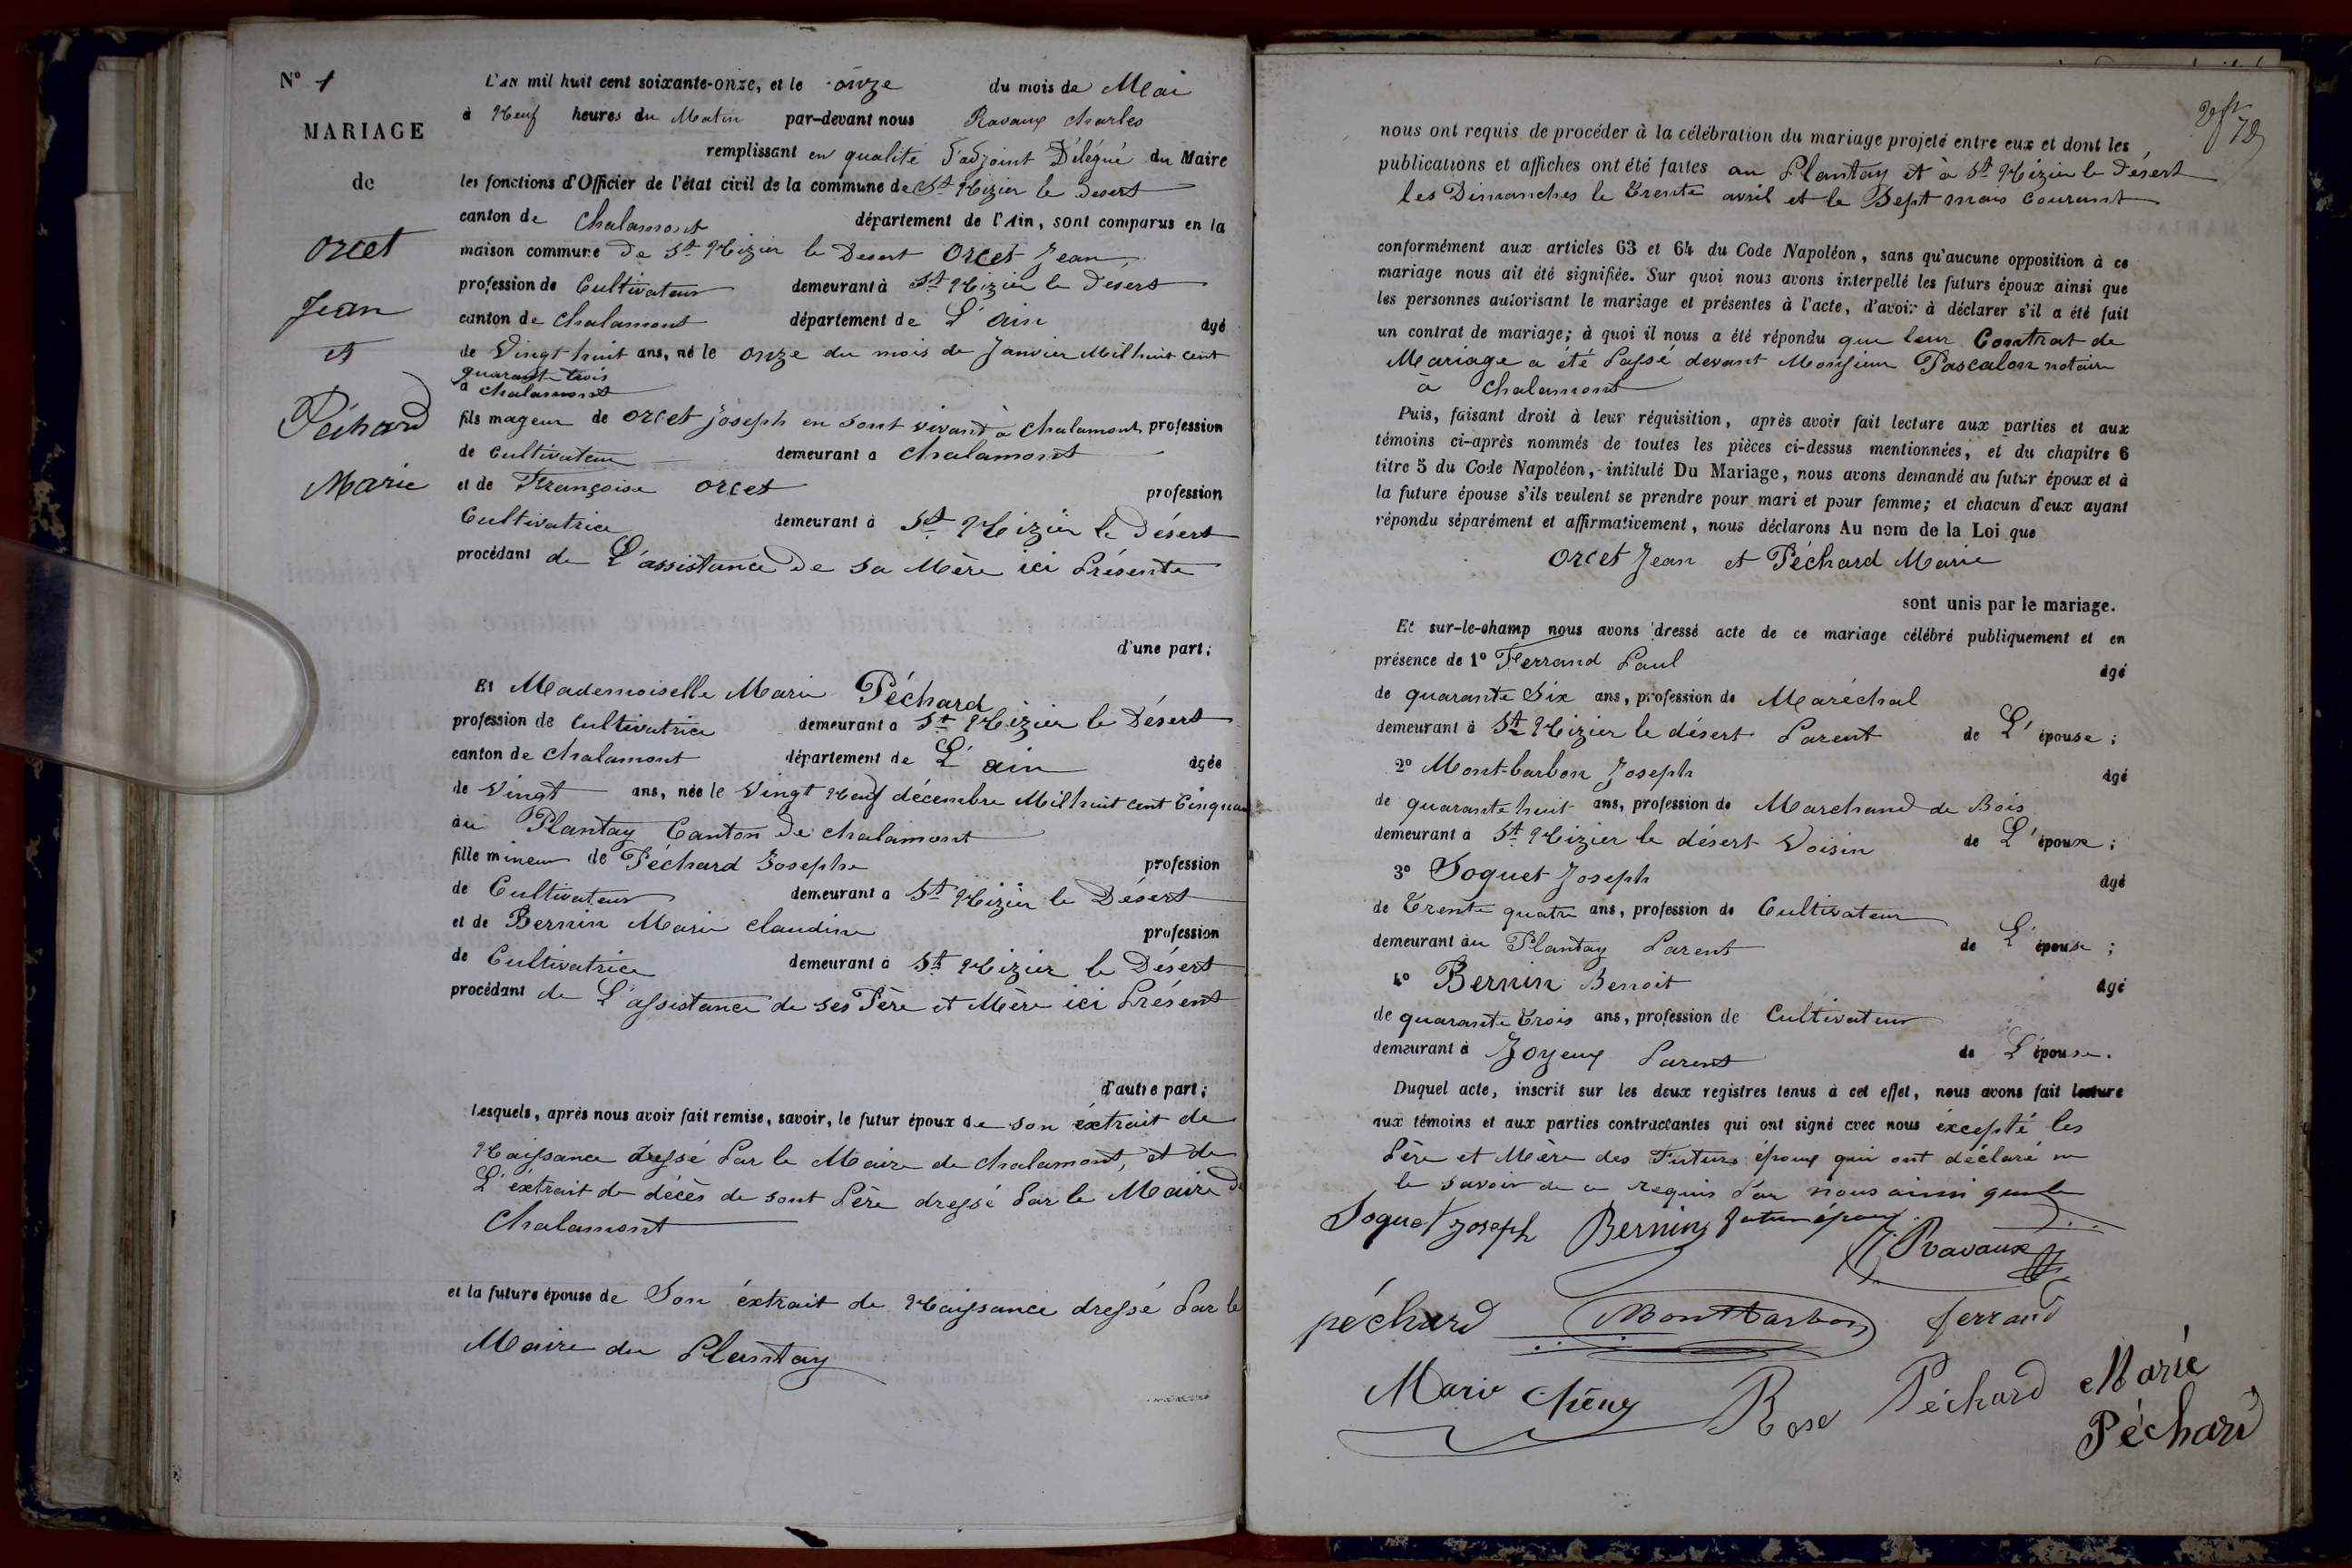 N° 1
MARIAGE
de
Orcet
Jean
et
Péchard
Marie
L'AN mil huit cent soixante-onze, et le onze du mois de Mai
à Neuf heures du Matin par-devant nous Ravaux Charles
remplissant en qualité d'adjoint Délégué du Maire
les fonctions d'Officier de l'état civil de la commune de St Nizier le Désert
canton de Chalamont département de l'Ain, sont comparus en la
maison commune de St Nizier le Désert Orcet Jean
profession de Cultivateur demeurant à St Nizier le Désert
canton de Chalamont département de L'ain âgé
de Vingt-huit ans, né le onze du mois de Janvier Mil huit cent
quarante trois
à Chalamont
fils mageur de Orcet Joseph en sont vivant à Chalamont profession
de Cultivateur demeurant à Chalamont
et de Françoise Orcet profession
Cultivatrice demeurant à St Nizier le Désert
procédant de L'assistance de sa Mère ici Présente
d'une part;
Et Mademoiselle Marie Péchard
profession de Cultivatrice demeurant à St Nizier le Désert
canton de Chalamont département de L'ain âgée
de Vingt ans, née le Vingt Neuf décembre Mil huit cent Cinquan
au Plantay Canton de Chalamont
fille mineur de Péchard Josephe profession
de Cultivateur demeurant à St Nizier le Désert
et de Bernin Marie Claudine profession
de Cultivatrice demeurant à St Nizier le Désert
procédant de L'assistance de ses Père et Mère ici Présent
d'autre part;
Lesquels, après nous avoir fait remise, savoir, le futur époux de son éxtrait de
Naissance dressé Par le Maire de Chalamont, et de
L'éxtrait de décès de sont Père dressé Par le Maire de
Chalamont
et la future épouse de Son éxtrait de Naissance dressé Par le
Maire du Plantay
72
nous ont requis de procéder à la célébration du mariage projeté entre eux et dont les
publications et affiches ont été faites au Plantay et à St Nizier le désert
les Dimanches le Trente avril et le Sept mais Courant
conformément aux articles 63 et 64 du Code Napoléon, sans qu'aucune opposition à ce
mariage nous ait été signifiée. Sur quoi nous avons interpellé les futurs époux ainsi que
les personnes autorisant le mariage et présentes à l'acte, d'avoir à déclarer s'il a été fait
un contrat de mariage; à quoi il nous a été répondu que leur Contrat de
Mariage a été Passé devant Monsieur Pascalon notaire
à Chalamont
Puis, faisant droit à leur réquisition, après avoir fait lecture aux parties et aux
témoins ci-après nommés de toutes les pièces ci-dessus mentionnées, et du chapitre 6
titre 5 du Code Napoléon, intitulé Du Mariage, nous avons demandé au futur époux et à
la future épouse s'ils veulent se prendre pour mari et pour femme; et chacun d'eux ayant
répondu séparément et affirmativement, nous déclarons Au nom de la Loi que
Orcet Jean et Péchard Marie
sont unis par le mariage.
Et sur-le-champ nous avons dressé acte de ce mariage célébré publiquement et en
présence de 1° Ferrand Paul âgé
de quarante Six ans, profession de Maréchal
demeurant à St Nizier le désert Parent de L'épouse;
2° Mont-barbon Joseph âgé
de quarante huit ans, profession de Marchand de Bois
demeurant à St Nizier le désert Voisin de L'épouse;
3° Soquet Joseph âgé
de Trente quatre ans, profession de Cultivateur
demeurant au Plantay Parent de L'épouse;
4° Bernin Benoit âgé
de quarante trois ans, profession de Cultivateur
demeurant à Joyeux Parent de L'épouse.
Duquel acte, inscrit sur les deux registres tenus à cet effet, nous avons fait lecture
aux témoins et aux parties contractantes qui ont signé avec nous éxcepté les
Père et Mère des Futurs époux qui ont déclaré ne
le savoir de ce requis Par nous ainsi que le
futur époux
Soquet Joseph Bernin Ravaux
péchard Montbarbon ferrand
Marie Chêne Rose Péchard Marie
Péchard